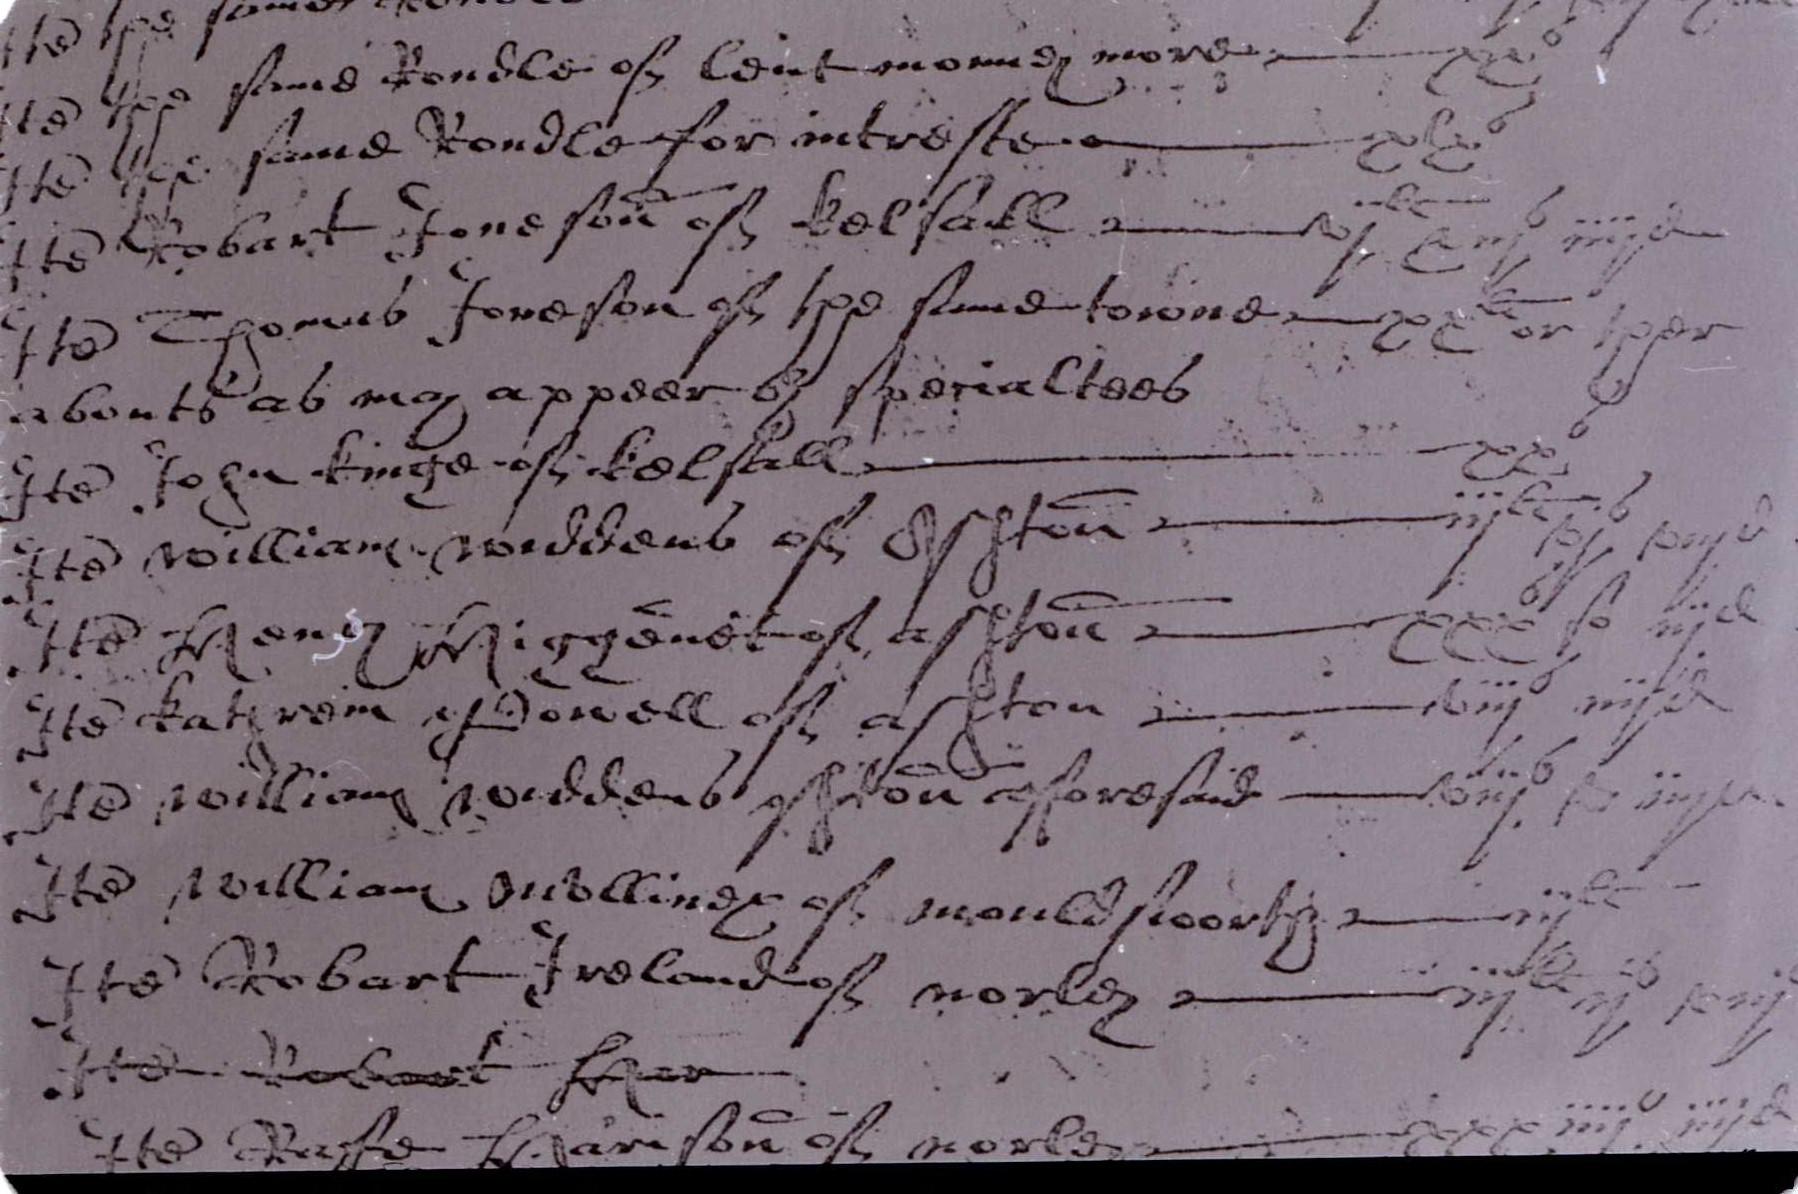 Itē the same Rondle
Itē the same Rondle of lent monney more xxs
Itē the same Rondle for intreste xls
Itē Robart Joneson̄ of kelsall vjli xiijs iiijd
Itē Thomas Joneson of the same towne xxli or ther
abouts as may appeer by specialtees
Itē John kinge of kelsall xxs
Itē william widdens of Ashton̄ iijli vjs viijd
Itē Henry Higgēnet of ashton̄ xxxs iijd
Itē katherein Powell of ashton viijs iiijd
Itē william widdens of ashton̄ aforesaid viijs iiijd
Itē william mulliney of mouldswoorth iijli
Itē Robart Ireland of norley iijli iijs
Itē Robart Her
Itē Raffe Harison̄ of norley xxxiiijs iiijd